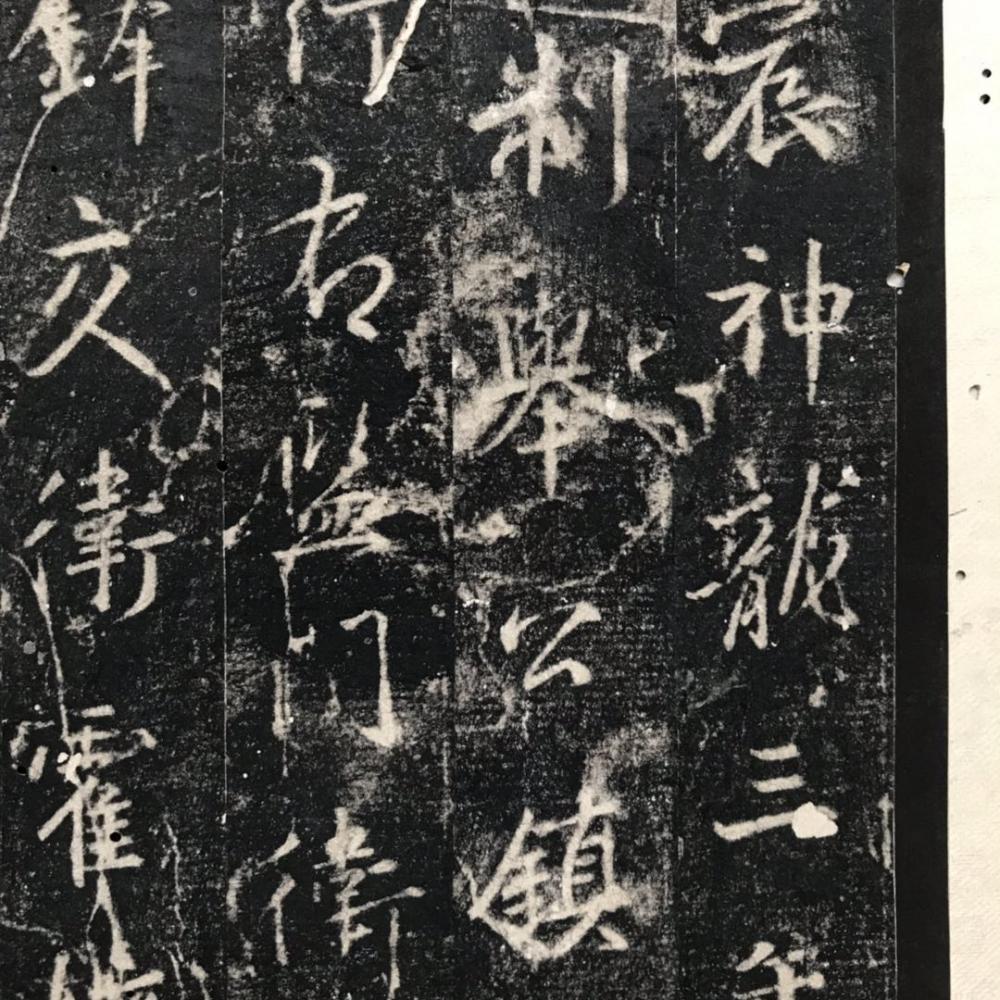 神龍三年
制舉公鎮
行右監門衛
鋒交衛霍